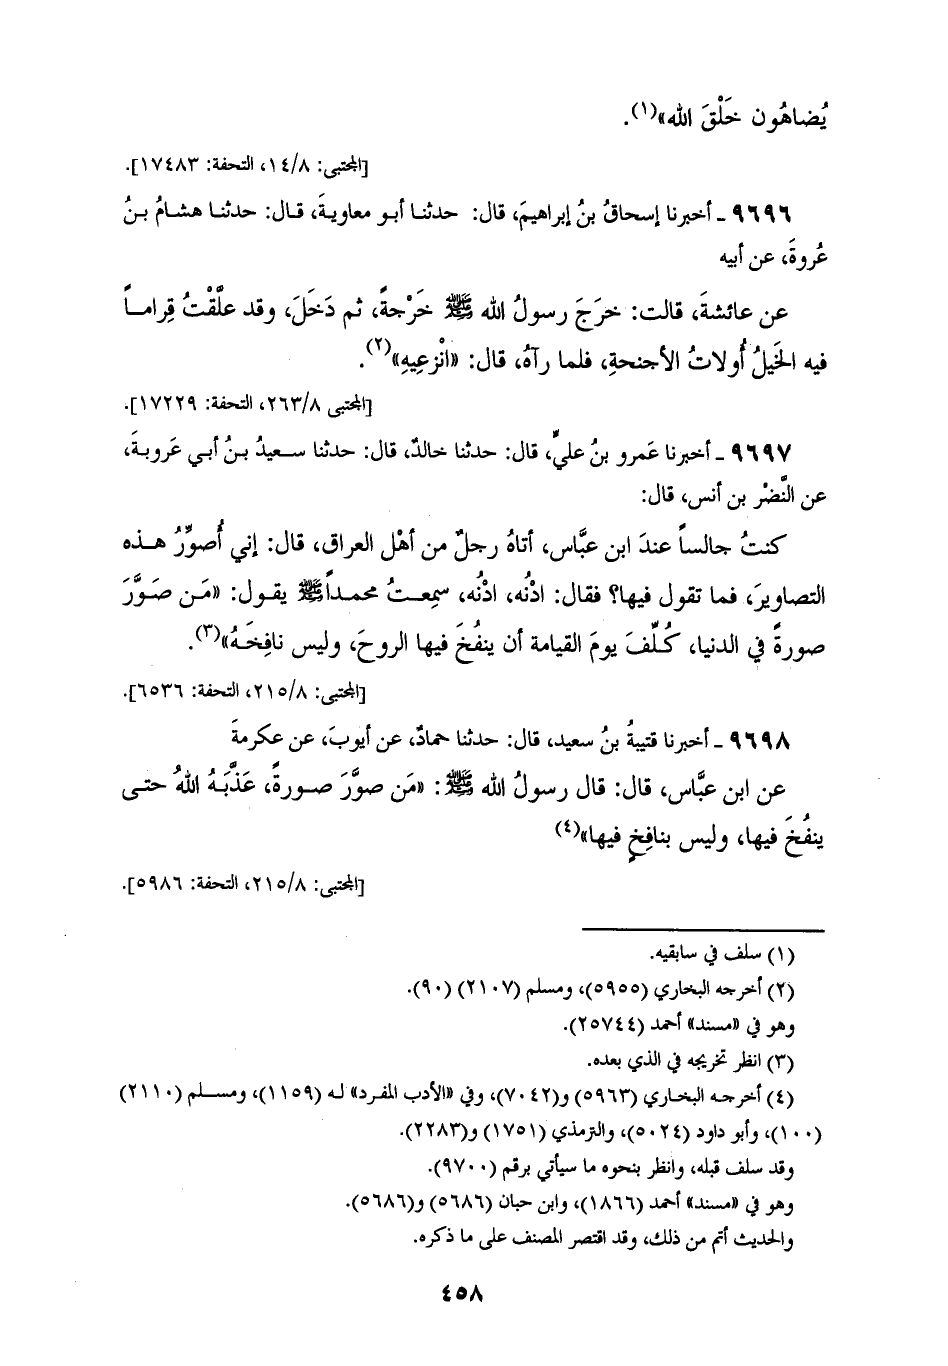 يُضاهُون خَلْقَ الله»(١).
[المجتبى: ١٤/٨، التحفة: ١٧٤٨٣].
٩٦٩٦ ـ أخبرنا إسحاقُ بنُ إبراهيمَ، قال: حدثنا أبو معاويةَ، قال: حدثنا هشامُ بنُ
عُروةَ، عن أبيه
عن عائشةَ، قالت: خرَجَ رسولُ الله ﷺ خَرْجةً، ثم دَخَلَ، وقد علَّقْتُ قِراماً
فيه الخَيلُ أُولاتُ الأجنحةِ، فلما رآهُ، قال: «انْزعِيهِ»(٢).
[المجتبى ٢٦٣/٨، التحفة: ١٧٢٢٩].
٩٦٩٧ ـ أخبرنا عَمرو بنُ عليٍّ، قال: حدثنا خالدٌ، قال: حدثنا سعيدُ بنُ أبي عَروبةَ،
عن النَّضْر بن أنس، قال:
كنتُ جالساً عندَ ابن عبَّاس، أتاهُ رجلٌ من أهْل العراق، قال: إني أُصوِّرُ هذه
التصاويرَ، فما تقول فيها؟ فقال: ادْنُه، ادْنُه، سمِعتُ محمداً ﷺ يقول: «مَن صَوَّرَ
صورةً في الدنيا، كُلِّفَ يومَ القيامة أن ينفُخَ فيها الروحَ، وليس نافِخَهُ»(٣).
[المجتبى: ٢١٥/٨، التحفة: ٦٥٣٦].
٩٦٩٨ ـ أخبرنا قتيبةُ بنُ سعيد، قال: حدثنا حمادٌ، عن أيوبَ، عن عكرمةَ
عن ابن عبَّاس، قال: قال رسولُ الله ﷺ: «مَن صوَّرَ صورةً، عَذَّبَهُ اللهُ حتى
ينفُخَ فيها، وليس بنافِخٍ فيها»(٤)
[المجتبى: ٢١٥/٨، التحفة: ٥٩٨٦].
(١) سلف في سابقيه.
(٢) أخرجه البخاري (٥٩٥٥)، ومسلم (٢١٠٧) (٩٠).
وهو في «مسند» أحمد (٢٥٧٤٤).
(٣) انظر تخريجه في الذي بعده.
(٤) أخرجه البخاري (٥٩٦٣) و(٧٠٤٢)، وفي «الأدب المفرد» له (١١٥٩)، ومسلم (٢١١٠)
(١٠٠)، وأبو داود (٥٠٢٤)، والترمذي (١٧٥١) و(٢٢٨٣).
وقد سلف قبله، وانظر بنحوه ما سيأتي برقم (٩٧٠٠).
وهو في «مسند» أحمد (١٨٦٦)، وابن حبان (٥٦٨٦) و(٥٦٨٦).
والحديث أتم من ذلك، وقد اقتصر المصنف على ما ذكره.
٤٥٨